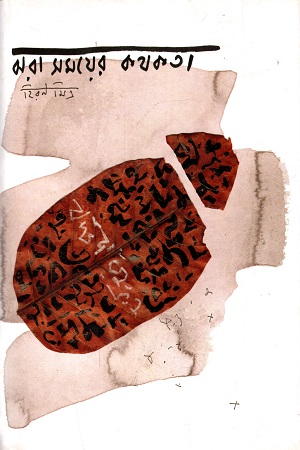 ঝরা সময়ের কথকতা
হিরণ মিত্র